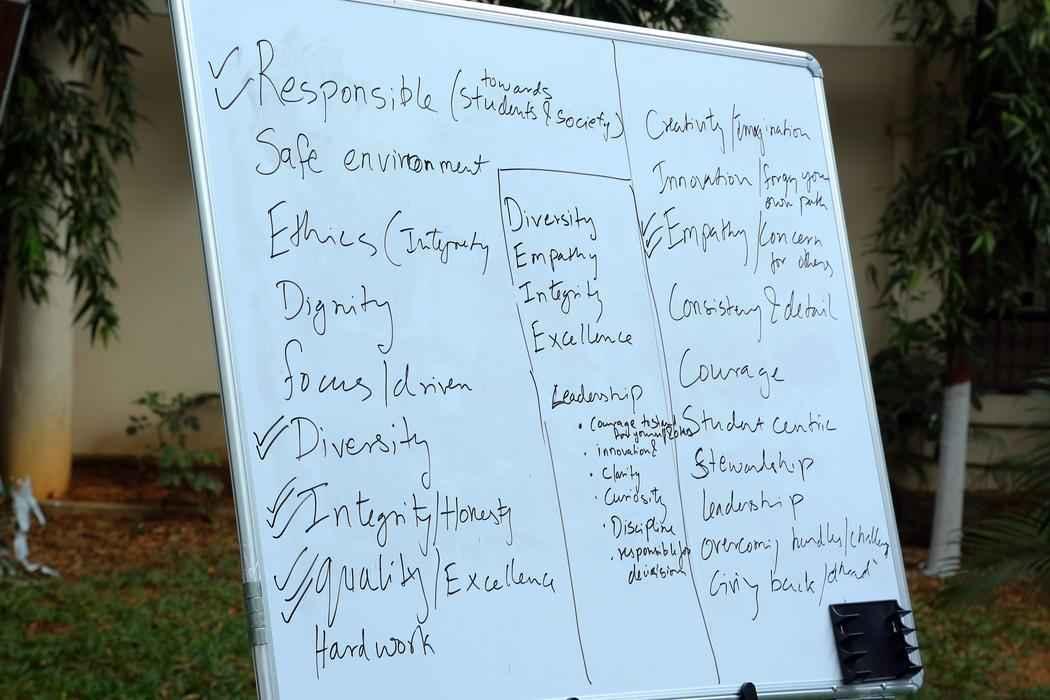 Responsible (towards
students & society)
Safe environment
Ethics (Integrety
Dignity
focus/driven
Diversity
Integrity/Honesty
Quality/Excellence
Hardwork
Diversity
Empathy
Integrity
Excellence
Leadership
• Courage to stand
• innovation &
• Clarity
• Curiosity
• Discipline
• responsible for
decision
Creativity/Imagination
Innovation/forge your
own path
Empathy/Concern
for others
Consistency & detail
Courage
Student centric
Stewardship
leadership
Overcoming hurdles/
Giving back/